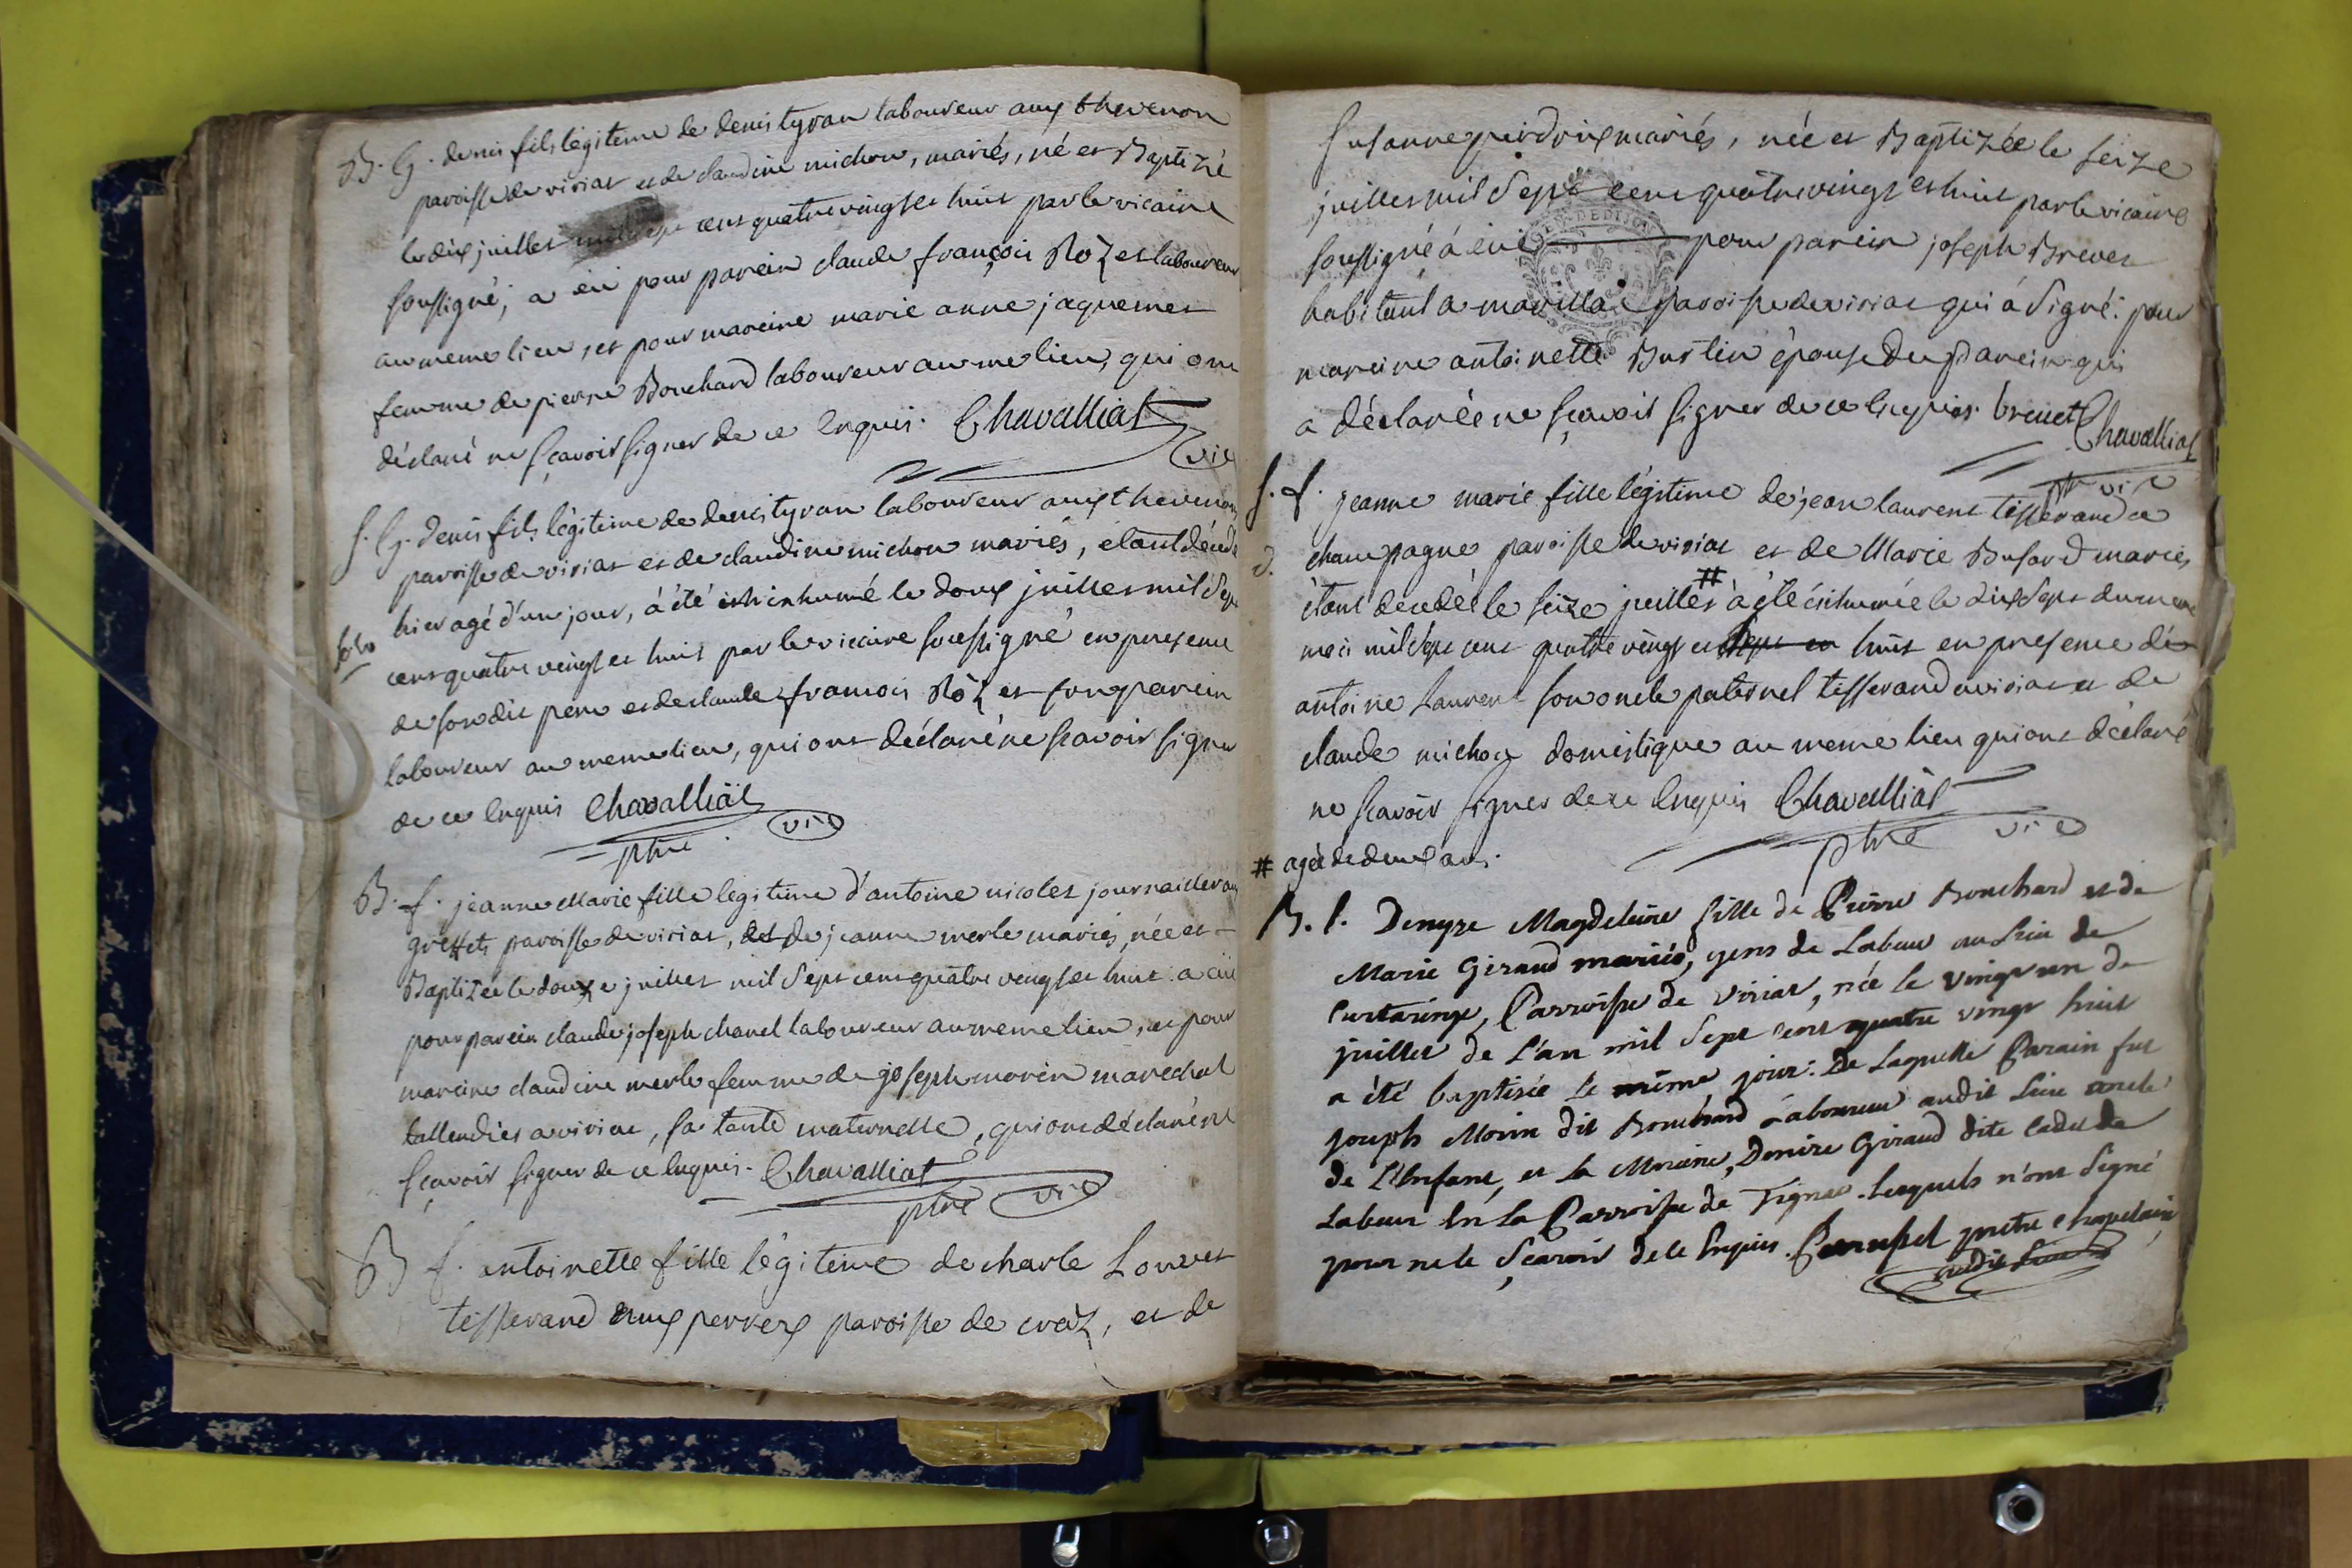 B. G. denis fils légitime de denis tyran laboureur aux thevenon
paroisse de viriat et de claudine michon, mariés, né et Baptizé
le dix juillet mil sept cent quatre vingt et huit par le vicaire
soussigné; a eu pour parein claude françois Rôz et laboureur
au meme lieu, et pour mareine marie anne jaquemet
femme de pierre Bouchard laboureur au me lieu, qui ont
déclaré ne sçavoir signer de ce enquis. Chavalliat
vic
S. G. denis fils légitime de denis tyran laboureur aux thevenon
paroisse de viriat et de claudine michon mariés, étant décédé
hier agé d'un jour, à été inhumé le douze juillet mil sept
cent quatre vingt et huit par le vicaire soussigné en presence
de son dit pere et de claude francois Rôz et son parein
laboureur au meme lieu, qui ont déclaré ne scavoir signer
de ce enquis Chavalliat
ptre vic
B. f. jeanne Marie fille legitime d'antoine nicolet journallier aux
greffets paroisse de viriat, et de jeanne merle mariés, née et
Baptizée le douze juillet mil sept cent quatre vingt et huit a eu
pour parein claude joseph chanel laboureur au meme lieu, et pour
mareine claudine merle femme de joseph morin marechal
tallendier a viriat, sa tante maternelle, qui ont déclaré ne
sçavoir signer de ce enquis. Chavalliat
ptre vic
B f. antoinette fille légitime de charle Louvet
tisserand aux perrex paroisse de craz, et de
susanne perdrix mariés, née et Baptizée le seize
juillet mil sept cent quatre vingt et huit par le vicaire
soussigné à eu pour parein joseph Brevet
habitant a marilla paroisse de viriat qui à signé: pour
mareine antoinette Bustin épouse du parein qui
a déclarée ne sçavoir signer de ce enquis. brevet Chavalliat
ptr vic
S. f. jeanne marie fille légitime de jean laurent tisserand a
d. champagne paroisse de viriat et de Marie Bufard mariés
étant decedée le seize juillet # à été inhumée le dix sept du meme
mois mil sept cent quatre vingt et sept et huit en presence de
antoine Laurent son oncle paternel tisserand a viriat et de
claude michon domestique au meme lieu qui ont déclaré
ne scavoir signer de ce enquis Chavalliat
ptre vic
# agée de deux ans.
B. f. Denyze Magdeleine fille de Pierre Bouchard et de
Marie Giraud mariés, gens de Labeur au Lieu de
Curtaringe, Parroisse de Viriat, née le vingt un de
juillet de L'an mil sept cent quatre vingt huit
a été baptisée le même jour: de Laquelle Parain fut
Joseph Morin dit Bouchard Laboureur audit Lieu oncle
de L'Enfant, et la Maraine, Denise Giraud dite Cadet de
Labeur en La Parroisse de Tignat. Lesquels n'ont signé
pour ne le sçavoir de ce enquis. prêtre chapelain
audit